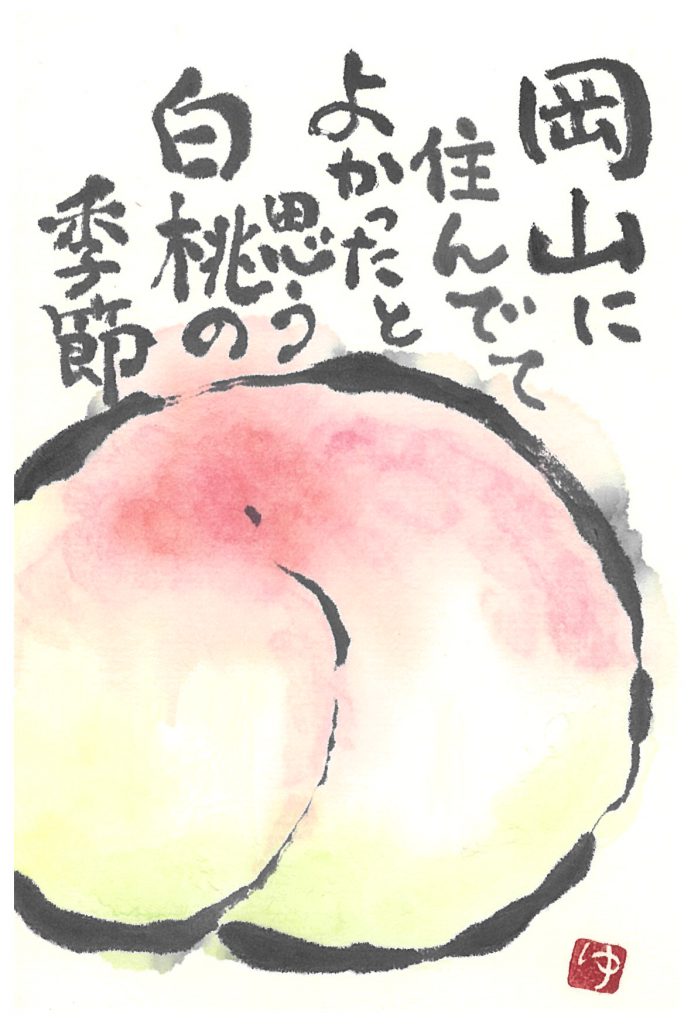 岡山に
住んでて
よかったと
思う
白桃の
季節
ゆ